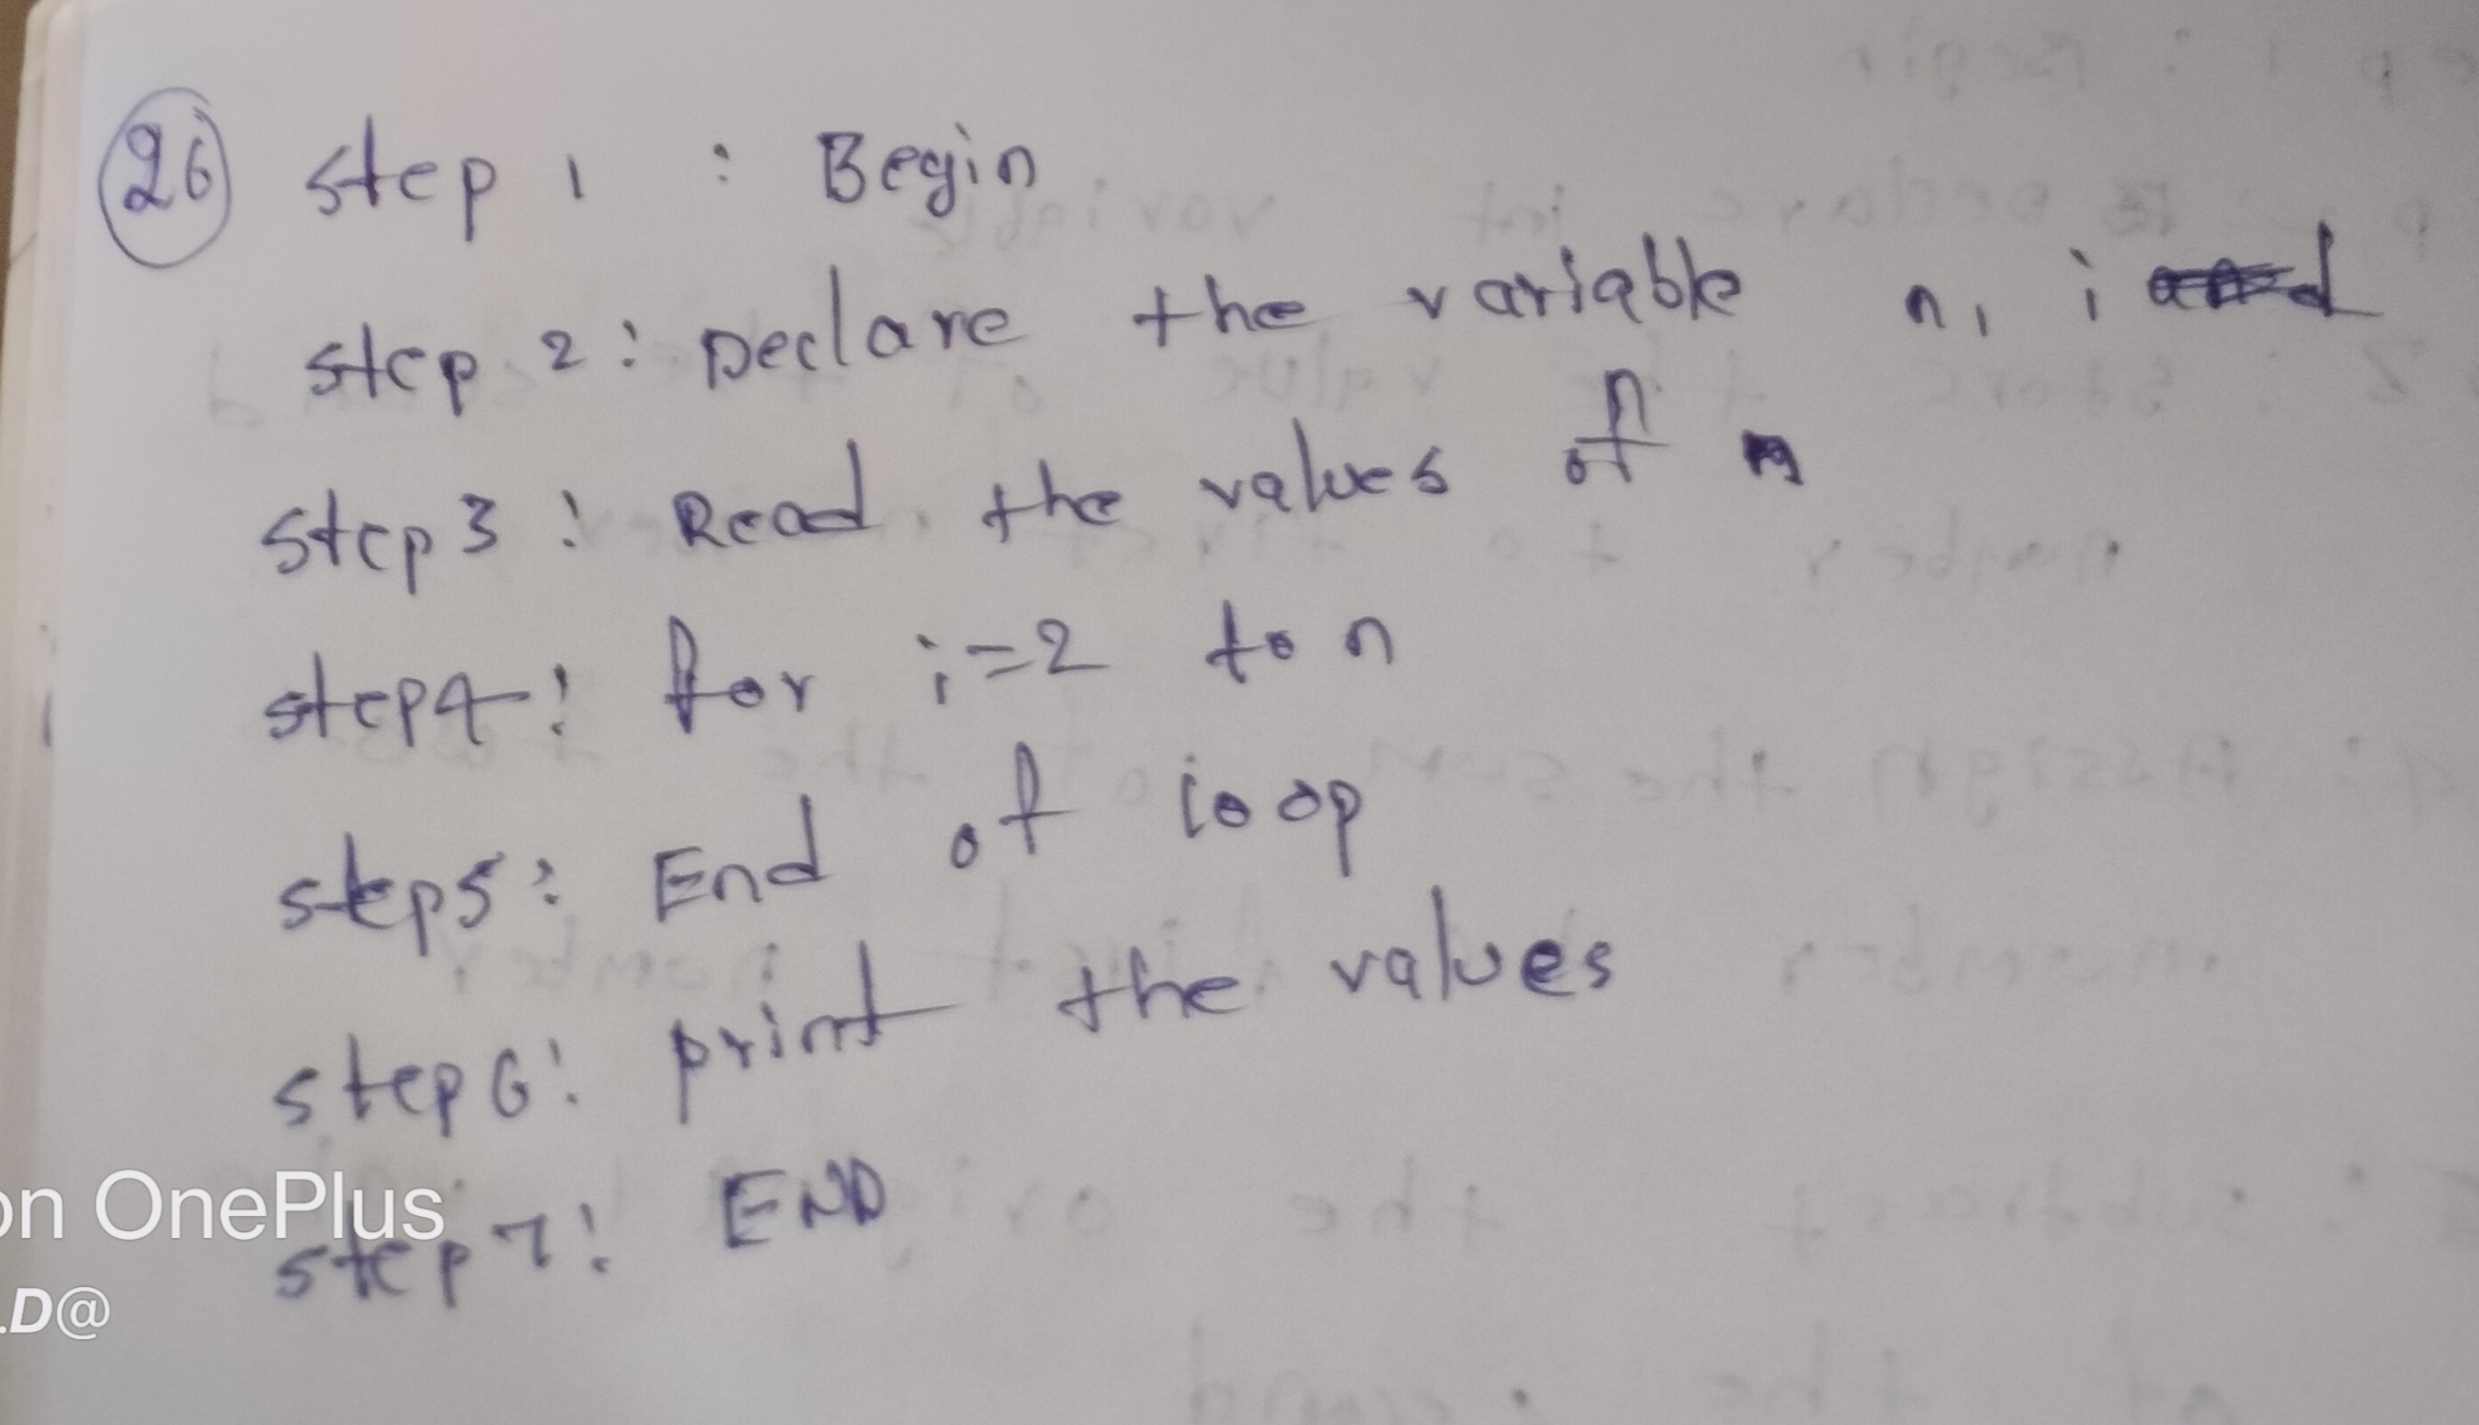 26 step 1 : Begin
step 2 : Declare the variable n, i
step 3 : Read the values of n
step 4 : for i=2 to n
step 5 : End of loop
step 6 : print the values
step 7 : END
on OnePlus
.D@